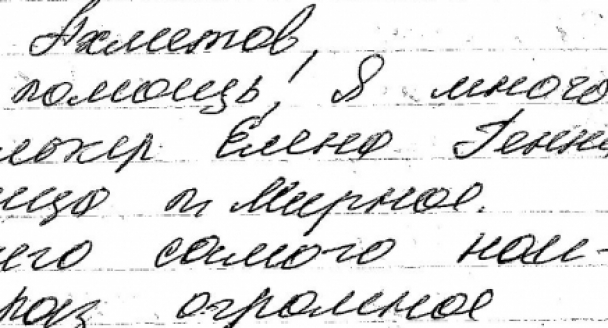 Ахметов,
помощь! Я много
Елена Генн
п. Мирное.
его самого наи-
раз огромное